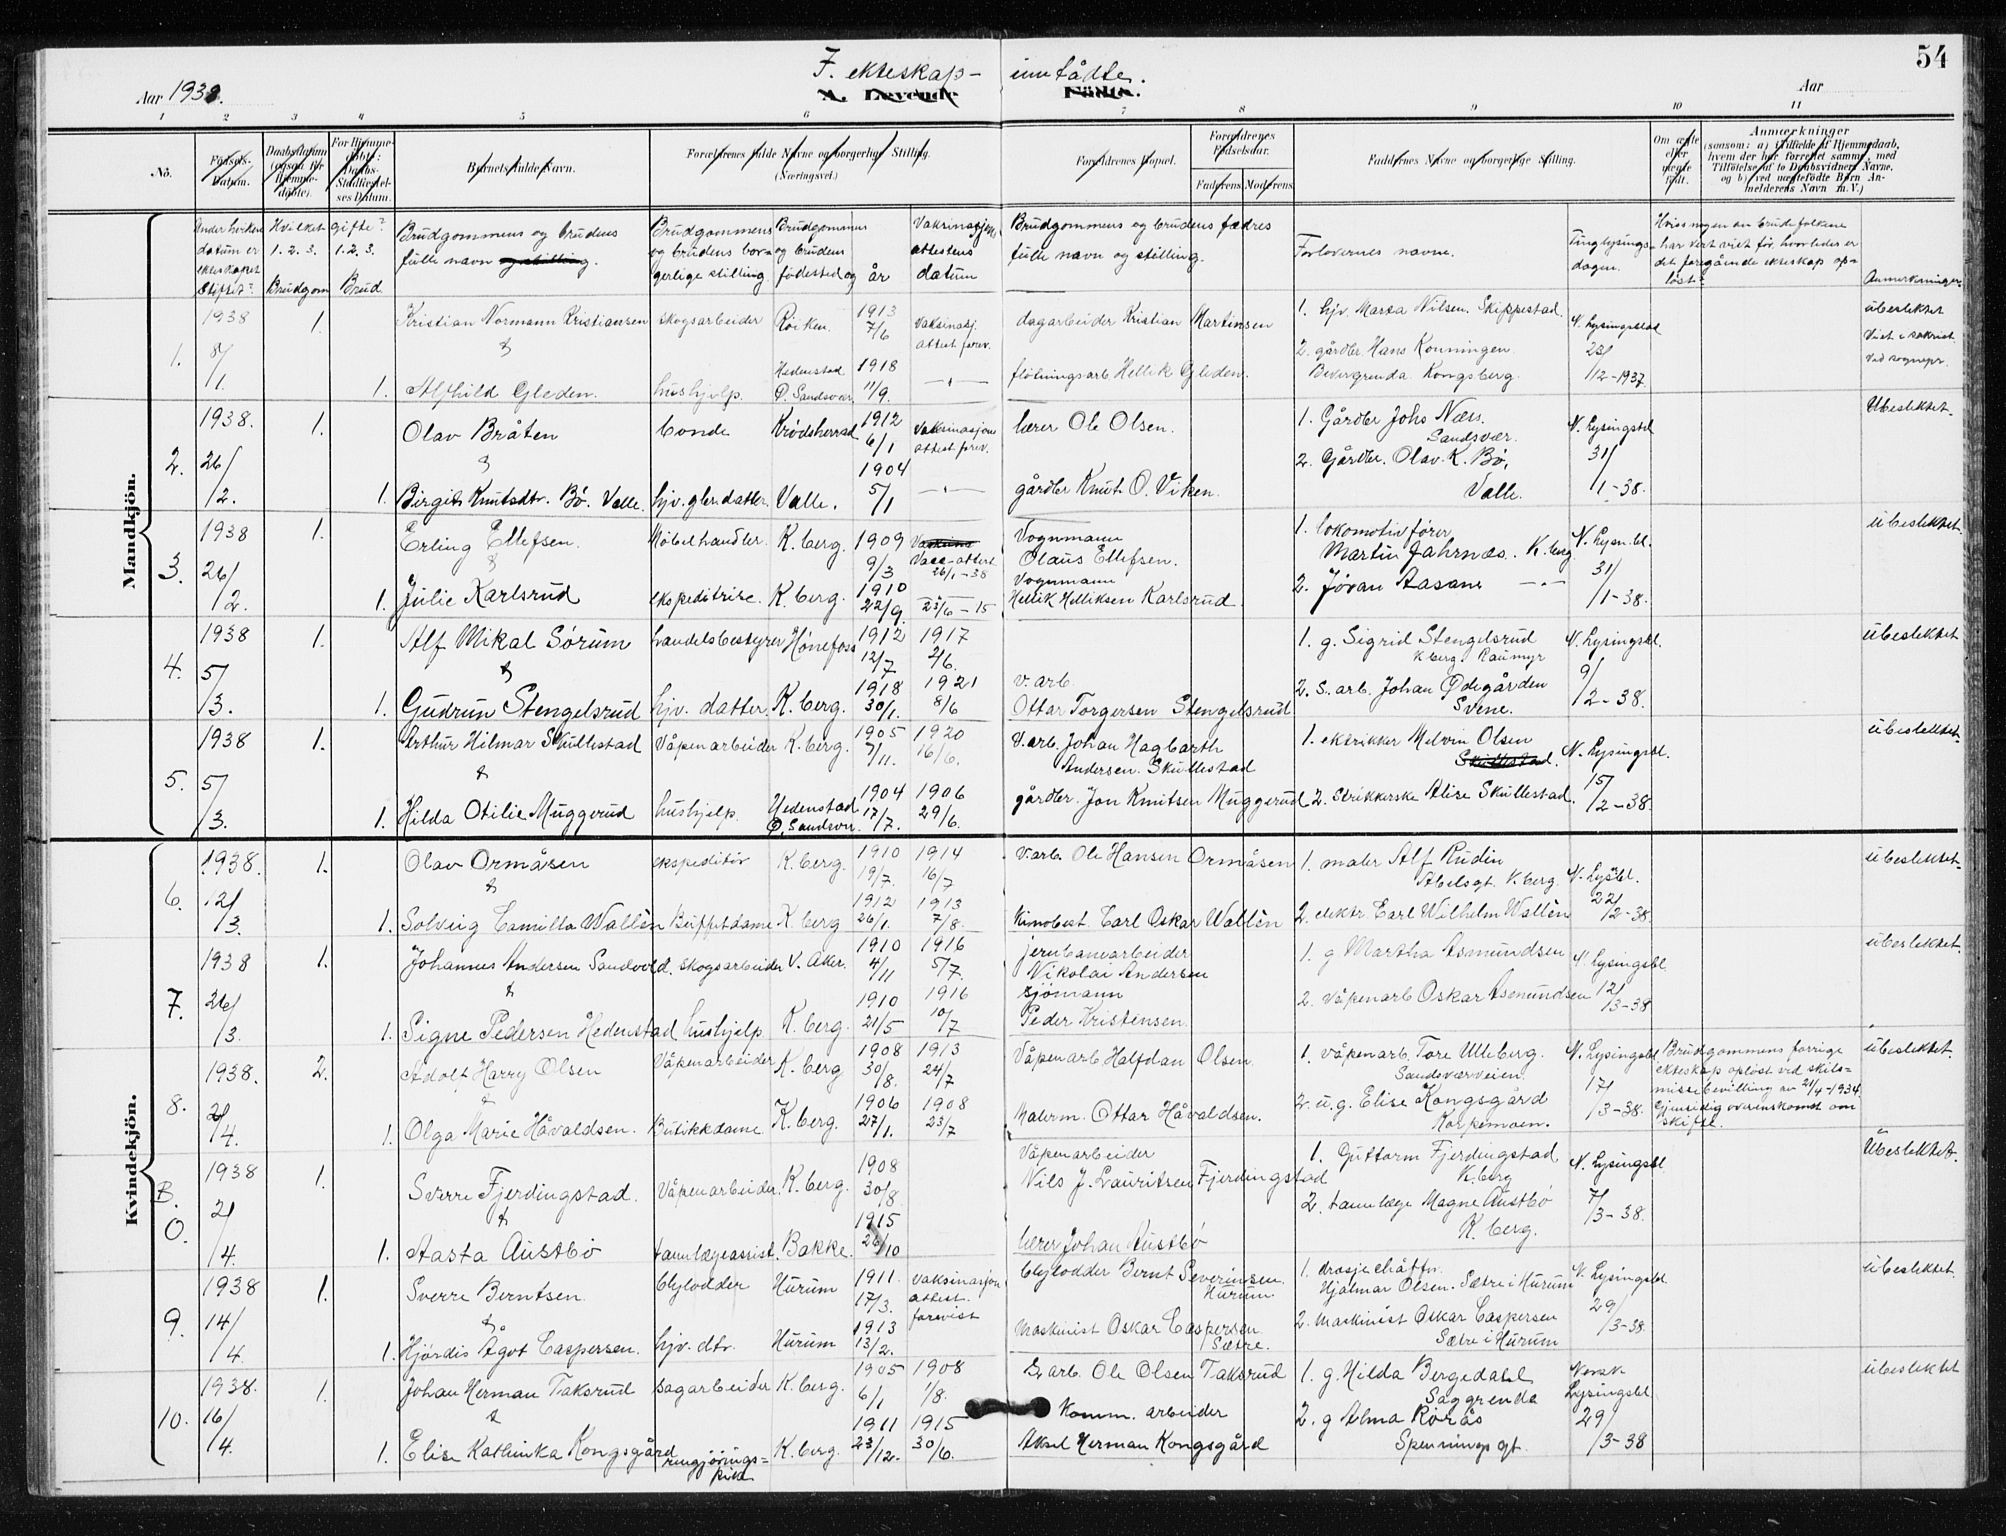 54
Aar 1938.
F. ekteskap- inngådte.
A. Levende Fødte.
Aar
1 2 3 4 5 6 7 8 9 10 11
No.
Fødsels-Datum.
Daabsdatum (ogsaa for Hjemmedøbte).
For Hjemmedøbte: Daabs-Stadfæstelsesdatum.
Barnets fulde Navn.
Forældrenes fulde Navne og borgerlige Stilling. (Næringsvei.)
Forældrenes Bopæl.
Forældrenes Fødselsaar.
Faderens Moderens
Faddernes Navne og borgerlige Stilling.
Om ægte eller uægte født.
Anmærkninger
(saasom: a) i tilfælde af Hjemmedaab, hvem der har forrettet samme, med Tilføielse af to Daabsvidners Navne, og b) ved uægtefødte Børn Anmelderens Navn m. V.)
Under hvilken datum er ekteskapet stiftet?
Hvilket gifte?
1. 2. 3. Brudgom
1. 2. 3. Brud
Brudgommens og brudens fulle navn og stilling.
Brudgommens og brudens borgerlige stilling
Brudgommens og brudens fødested og år
Vaksinasjonsattestens datum
Brudgommens og brudens fadres fulle navn og stilling.
Forlovernes navne.
Tinglysingsdagen.
Hvis nogen av brudefolkene har vert viet før, hvorledes er det foregående ekteskap opløst?
Anmerkninger
Mandkjön.
1. 1938 8/1. 1. Kristian Normann Kristiansen skogsarbeider Röiken 1913 7/6 Vaksinasj. attest forev. dagarbeider Kristian Martinsen
& 1. Alfhild Gleden. hushjelp. Hedenstad Ø. Sandsvær 1918 11/9. —"— fløtningsarb. Hellik Gleden.
1. hjv. Marta Nilsen. Skippestad
2. gårdbr. Hans Konningen. Bevergrenda Kongsberg.
N. Lysingsblad 23/12-1937
ubeslektet Viet i sakrist. ved sognepr.
2. 1938. 26/2. 1. Olav Bråten bonde Krødsherad 1912 6/1 Vaksinasjons attest forev. lærer Ole Olsen.
& 1. Birgit Knutsdtr. Bø. Valle. hjv. gbr. datter Valle. 1904 5/1 —"— gårdbr Knut O. Viken.
1. Gårdbr Johs Næss. Sandsvær.
2. Gårdbr. Olav K. Bø. Valle.
N. Lysingsbl 31/1-38.
Ubeslektet.
3. 1938 26/2. 1. Erling Ellefsen. Møbelhandler. K.berg. 1909 9/3 Vacc-attest 26/1-38 Vognmann Olaus Ellefsen.
& 1. Julie Karlsrud ekspeditrise. K.berg. 1910 22/9. 23/6-15 Vognmann Hellik Helliksen Karlsrud.
1. lokomotivfører Martin Jahrnæs. K.berg
2. Jøran Aasane —"—
N. Lysn.bl. 31/1-38.
ubeslektet.
4. 1938 5/3. 1. Alf Mikal Sörum handelsbestyrer Hønefoss 1912 12/7 1917 2/6.
& 1. Gudrun Stengelsrud hjv. datter. K.berg. 1918 30/1. 1921 8/6 v. arb. Ottar Torgersen Stengelsrud
1. g. Sigrid Stengelsrud K.berg. Raumyr
2. s. arb. Johan Ødegården Svene.
N. Lysingsbl. 9/2-38.
ubeslektet
5. 1938 5/3. 1. Arthur Hilmar Skullestad Våpenarbeider K.berg. 1905 7/11. 1920 16/6. V. arb. Johan Hagbarth Andersen. Skullestad
& 1. Hilda Otilie Muggerud hushjelp. Hedenstad Ø. Sandsver. 1904 17/7. 1906 29/6. gårdbr. Jon Knutsen Muggerud
1. elektrikker Melvin Olsen Skullestad.
2. Strikkerske Alise Skullestad.
N. Lysingsbl. 15/2-38.
ubeslektet.
Kvindekjön.
6. 1938. 12/3. 1. Olav Ormåsen ekspeditör K.berg. 1910 19/7. 1914 16/7 V. arb. Ole Hansen Ormåsen
& 1. Solveig Camilla Wallèn Buffetdame K.berg 1912 26/1. 1913 7/8. Kinobest. Carl Oskar Wallèn
1. maler Alf Rudin Abelsgt. K.berg.
2. elektr Carl Wilhelm Wallèn
N. Lysbl. 22/2-38
ubeslektet.
7. 1938 26/3. 1. Johannes Andersen Sandvold. skogsarbeider V. Aker. 1910 4/11 1916 5/7. jernbanearbeider Nikolai Andersen
& 1. Signe Pedersen Hedenstad hushjelp. K.berg. 1910 21/5 1916 10/7 sjömann Peder Kristensen.
1. g Martha Asmundsen
2. våpenarb Oskar Asmundsen
N. Lysingsbl. 12/3-38
ubeslektet.
8. 1938. 2/4. 2. Adolf Harry Olsen Våpenarbeider K.berg 1908 30/8. 1913 24/7 Våpenarb Halfdan Olsen.
& 1. Olga Marie Håvaldsen. Butikkdame K.berg. 1906 27/1. 1908 23/7 Malerm. Ottar Håvaldsen.
1. våpenarb. Tore Ulleberg. Sandsværveien
2. u.g. Elise Kongsgård Korpemoen.
N. Lysingsbl 17/3-38.
Brudgommens forrige ekteskap oplöst ved skilsmissebevilling av 21/4-1934. Gjensidig overenskomst om skifte.
ubeslektet.
B. O. 1938 2/4. 1. Sverre Fjerdingstad. Våpenarbeider. K.berg. 1908 30/8. Våpenarbeider Nils J. Lauritsen Fjerdingstad
& 1. Aasta Austbö tannlægeassist. Bakke. 1915 26/10 lærer Johan Austbö
1. Guttorm Fjerdingstad K.berg
2. tannlæge Magne Austbö K.berg.
N. Lysingsbl 7/3-38.
Ubeslektet.
9. 1938 14/4. 1. Sverre Berntsen. blylodder Hurum 1911. 17/3. vaksinasjonattest. forevist blylodder Bernt Severinsen. Hurum
& 1. Hjördis Ågot Caspersen. hjv. dtr. Hurum 1913 13/2. Maskinist Oskar Caspersen Sætre.
1. drosjecháffør. Hjalmar Olsen. Sætre i Hurum
2. Maskinist Oskar Caspersen Sætre i Hurum
N. Lysingsbl 29/3-38.
ubeslektet.
10. 1938. 16/4. 1. Johan Herman Taksrud sagarbeider K.berg. 1905 6/1 1908 1/8. S. arb. Ole Olsen Taksrud
& 1. Elise Kathinka Kongsgård rengjöringspike K.berg. 1911 23/12. 1915 30/6. Komm. arbeider Aksel Herman Kongsgård
1. g. Hilda Bergedahl Saggrenda
2. g Alma Rörås Spenningsgt.
Norsk Lysingsbl 29/3-38
ubeslektet